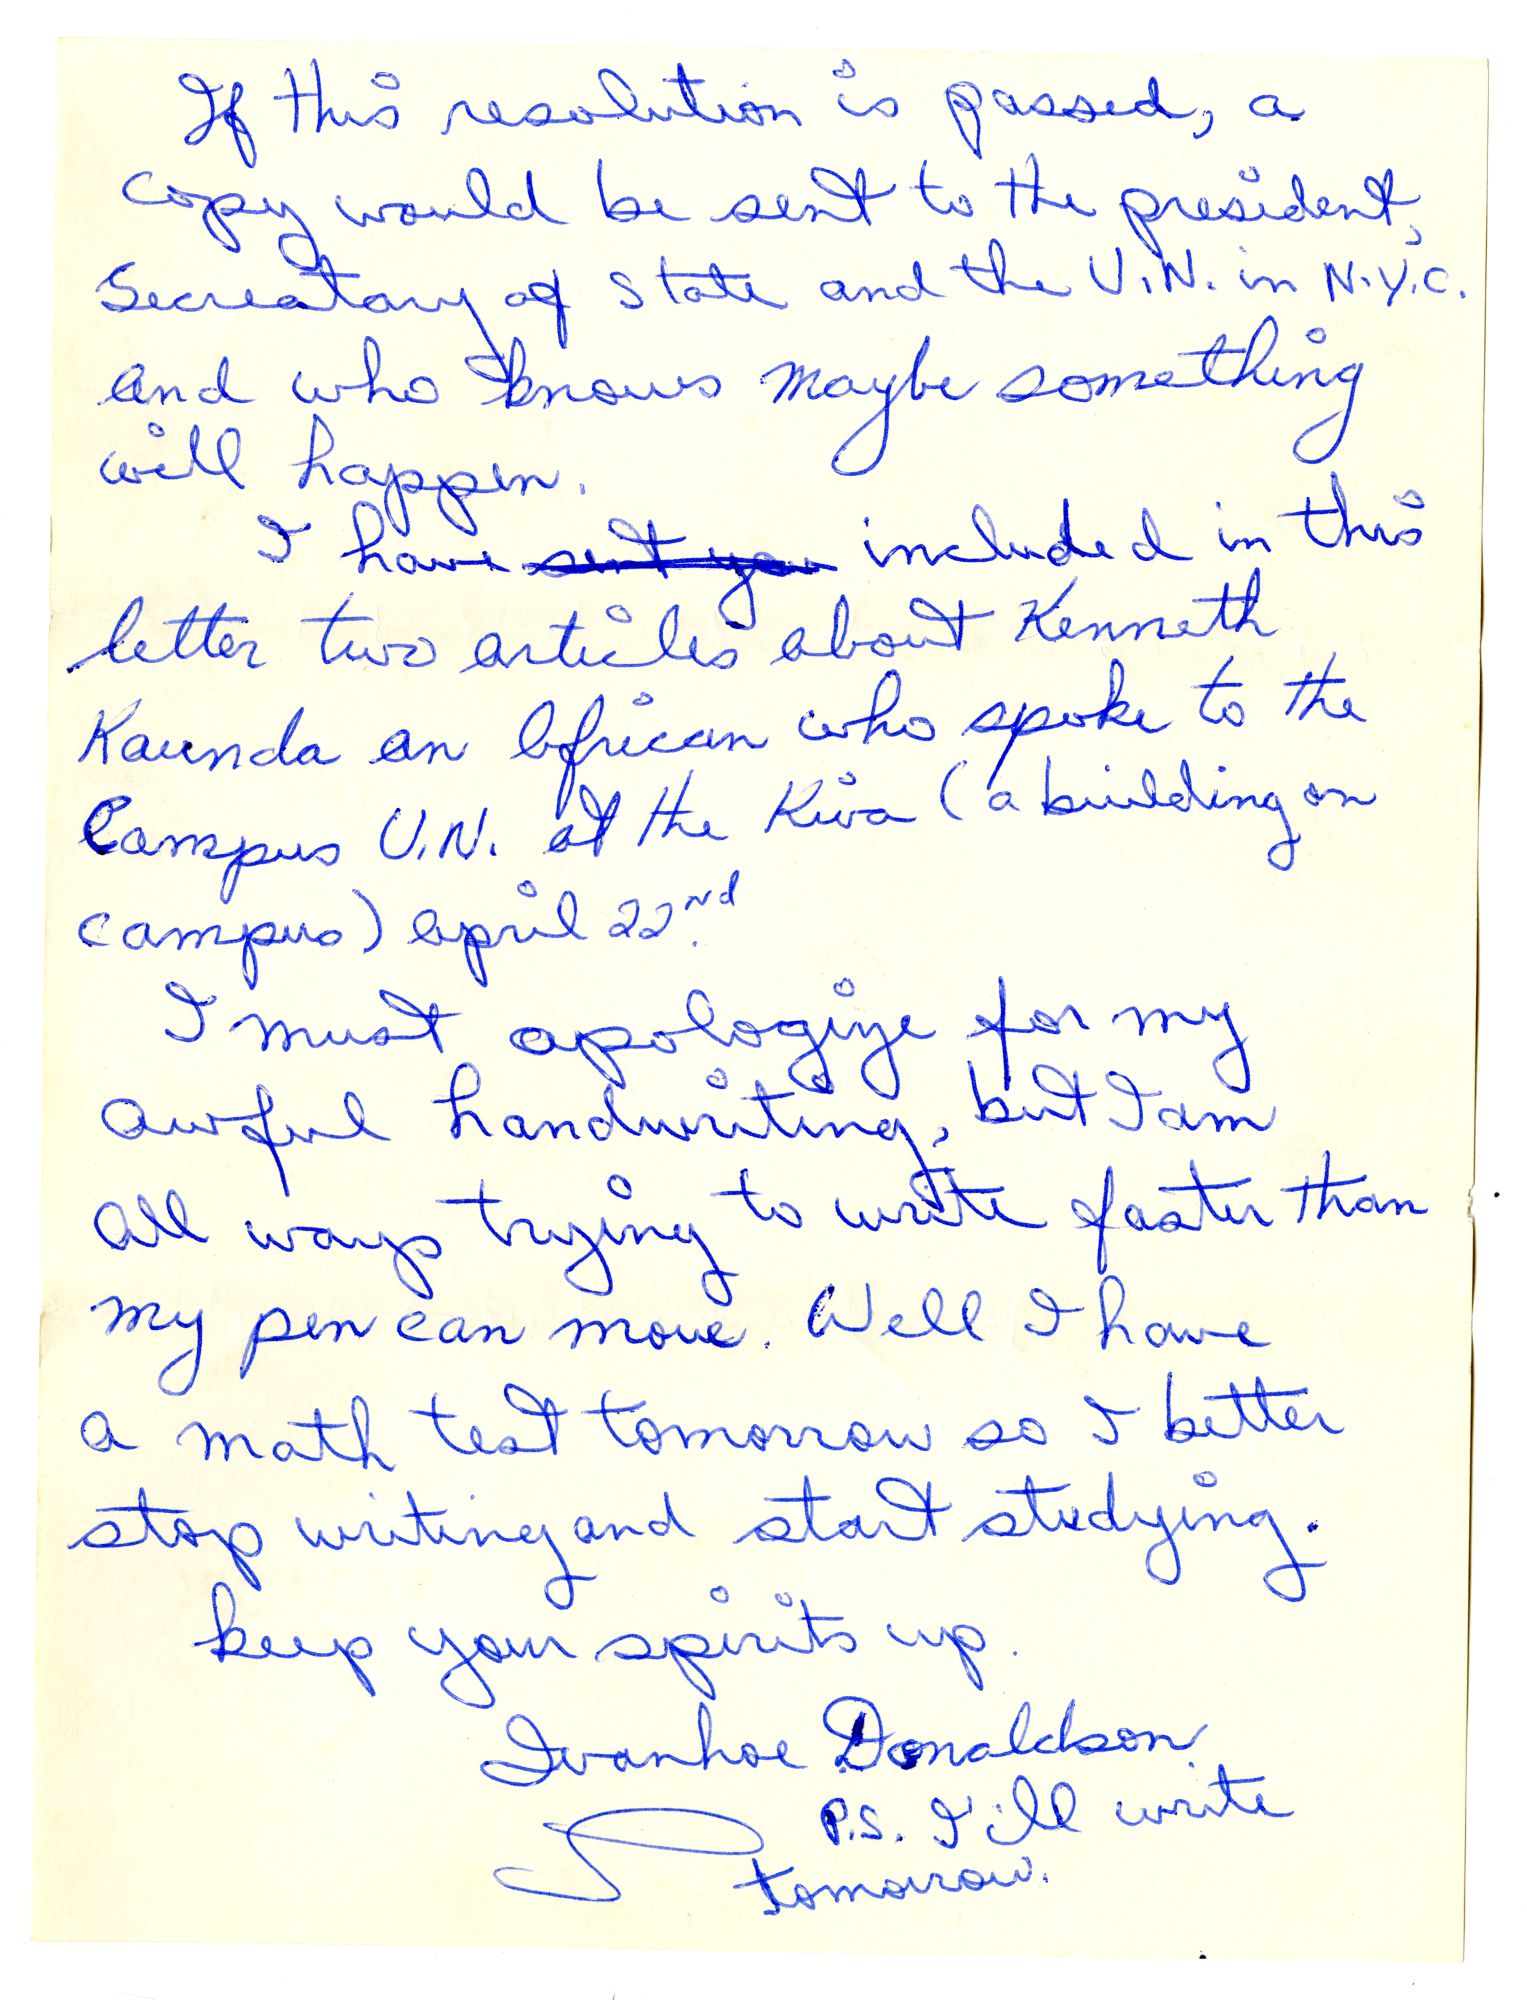 If this resolution is passed, a
copy would be sent to the president,
Secreatary of State and the U.N. in N.Y.C.
and who knows maybe something
will happen.
I have sent you included in this
letter two articles about Kenneth
Kaunda an African who spoke to the
Campus U.N. at the Kiva (a building on
campus) april 22nd.
I must apologize for my
awful handwriting, but I am
all ways trying to write faster than
my pen can move. Well I have
a math test tomorrow so I better
stop writing and start studying.
keep your spirits up.
Ivanhoe Donaldson
P.S. I'll write
tomorrow.